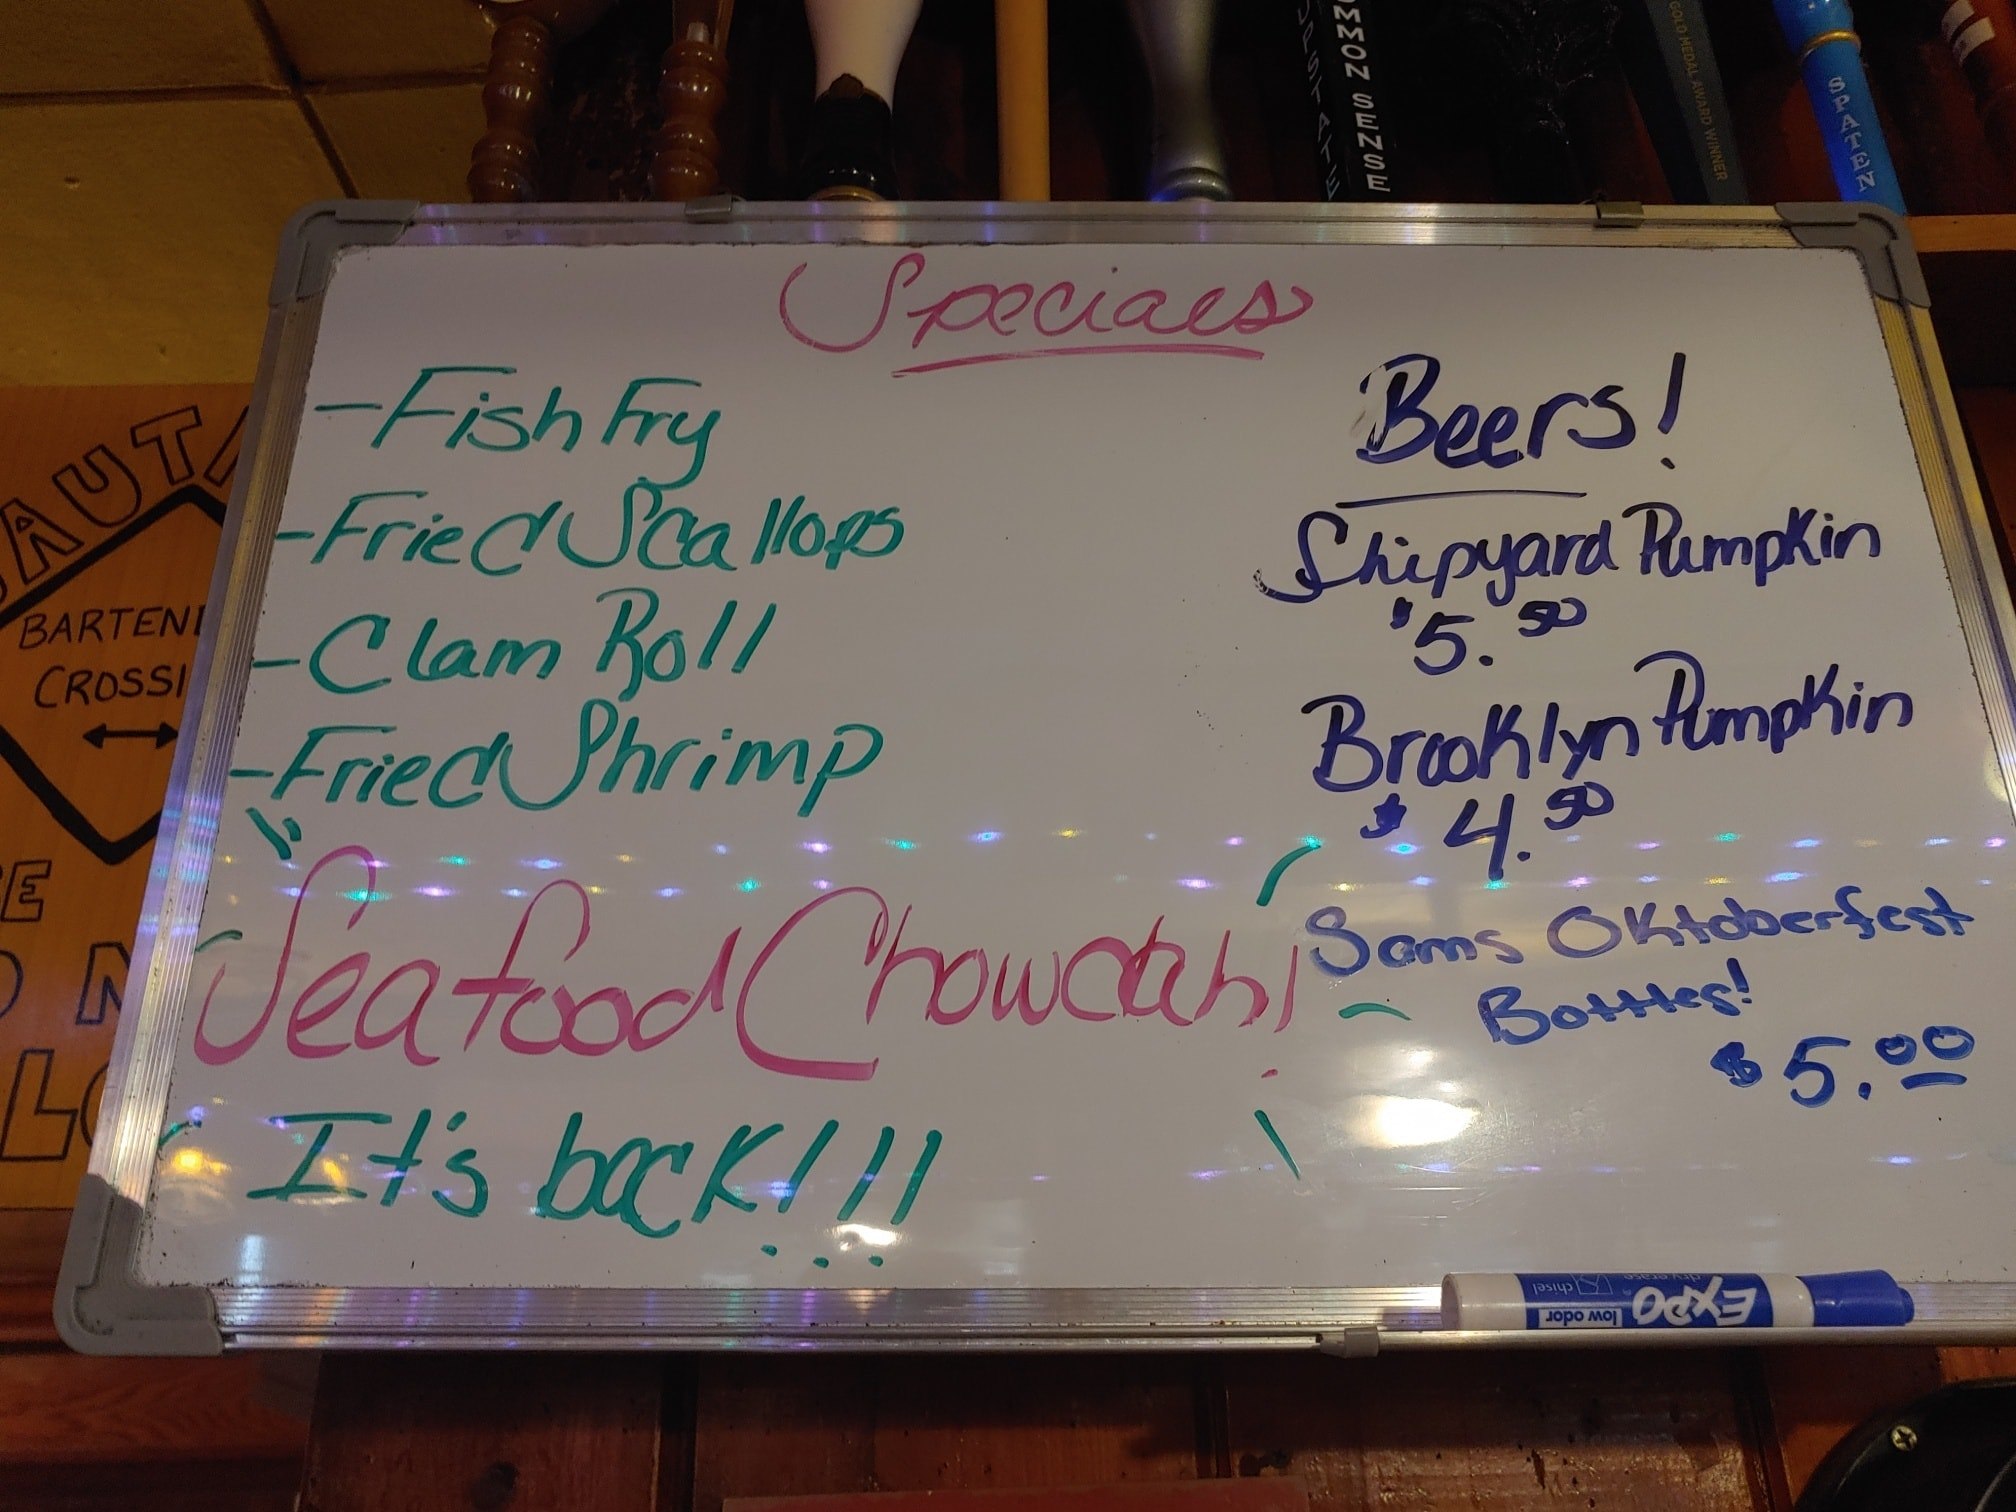 UPSTATE
MMON SENSE
GOLD MEDAL AWARD WINNER
SPATEN
Specials
- Fish Fry
- Fried Scallops
- Clam Roll
- Fried Shrimp
Seafood Chowdah!
It's back!!!
Beers!
Shipyard Pumpkin
$5.50
Brooklyn Pumpkin
$4.50
Sams Oktoberfest
Bottles!
$5.00
CAUTI
BARTEND
CROSSI
EXPO
low odor
dry erase
chisel